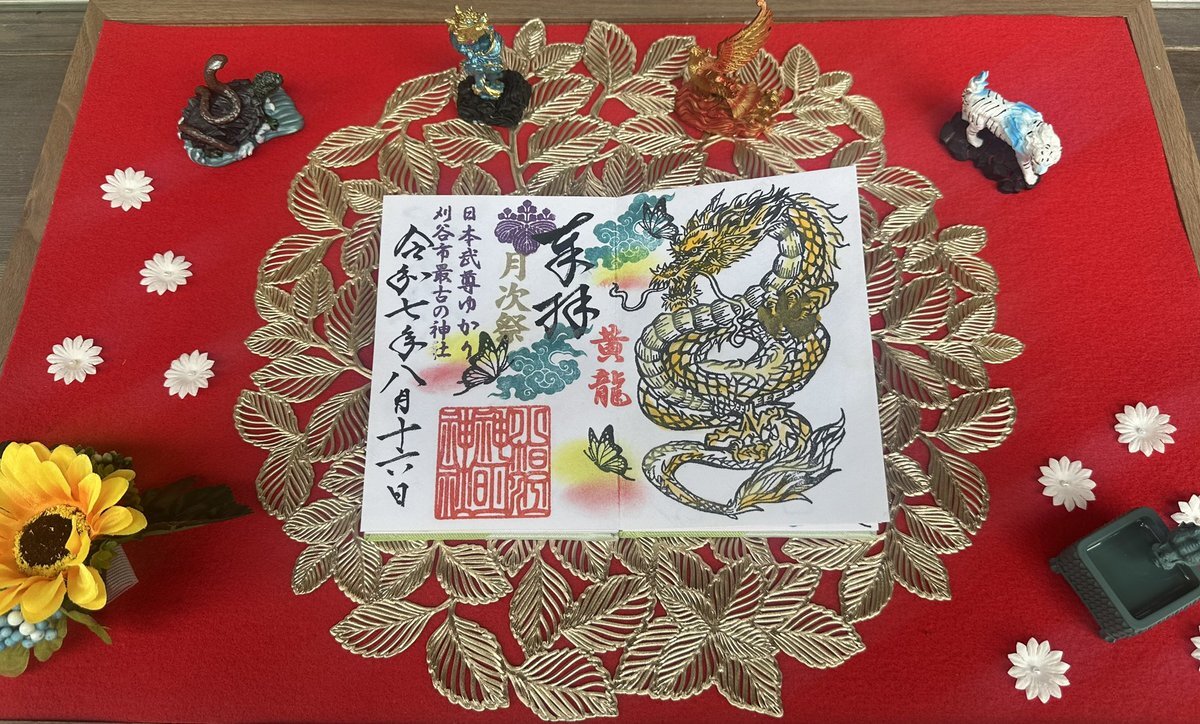 黄龍
奉拝
月次祭
日本武尊ゆかり
刈谷市最古の神社
小垣江
神明
神社
令和七年八月十六日